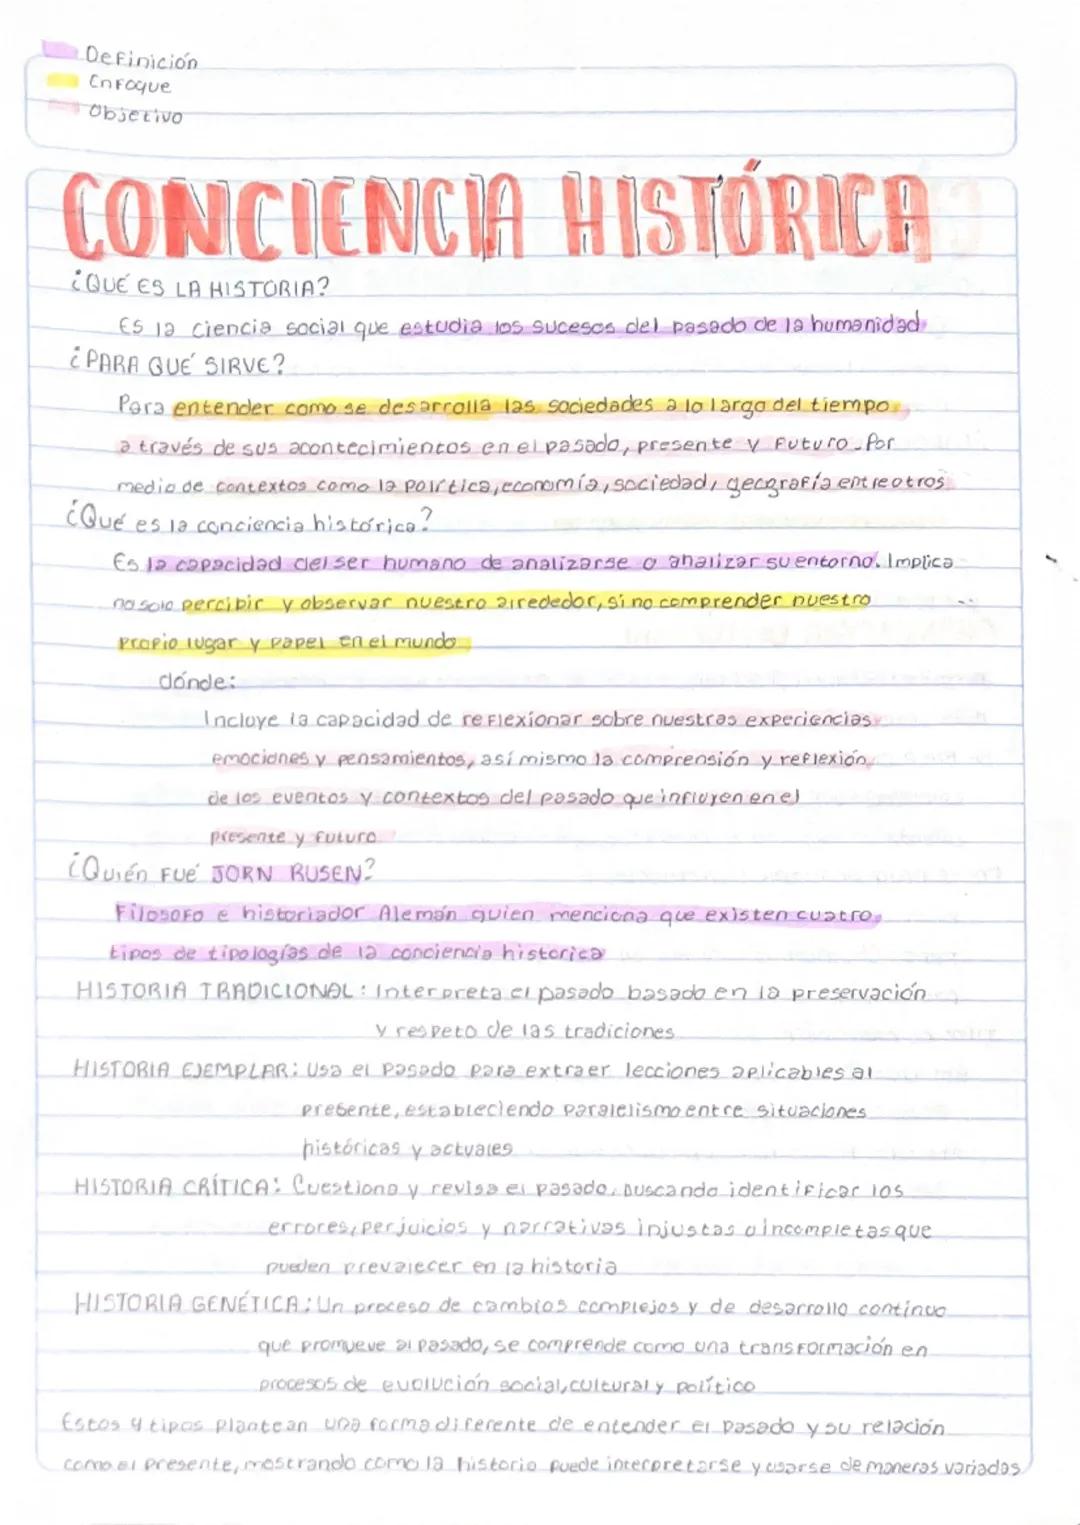 Definición
Enfoque
Objetivo
CONCIENCIA HISTÓRICA
¿QUÉ ES LA HISTORIA?
Es la ciencia social que estudia los sucesos del pasado de la humanidad
¿PARA QUÉ SIRVE?
Para entender como se desarrolla las sociedades a lo largo del tiempo
a través de sus acontecimientos en el pasado, presente y futuro. Por
medio de contextos como la política, economía, sociedad, geografía entre otros.
¿Qué es la conciencia histórica?
Es la capacidad del ser humano de analizarse o analizar su entorno. Implica
no solo percibir y observar nuestro alrededor, si no comprender nuestro
propio lugar y papel en el mundo
dónde:
Incluye la capacidad de reflexionar sobre nuestras experiencias
emociones y pensamientos, así mismo la comprensión y reflexión
de los eventos y contextos del pasado que influyen en el
presente y futuro.
¿Quién FUÉ JORN RUSEN?
Filosofo e historiador Alemán quien menciona que existen cuatro
tipos de tipologías de la conciencia historica
HISTORIA TRADICIONAL: Interpreta el pasado basado en la preservación
y respeto de las tradiciones
HISTORIA EJEMPLAR: Usa el pasado para extraer lecciones aplicables al
presente, estableciendo paralelismo entre situaciones
históricas y actuales
HISTORIA CRÍTICA: Cuestiona y revisa el pasado, buscando identificar los
errores, perjuicios y narrativas injustas o incompletas que
pueden prevalecer en la historia
HISTORIA GENÉTICA: Un proceso de cambios complejos y de desarrollo continuo
que promueve al pasado, se comprende como una transformación en
procesos de evolución social, cultural y político
Estos 4 tipos plantean una forma diferente de entender el pasado y su relación
como el presente, mostrando como la historia puede interpretarse y usarse de maneras variadas